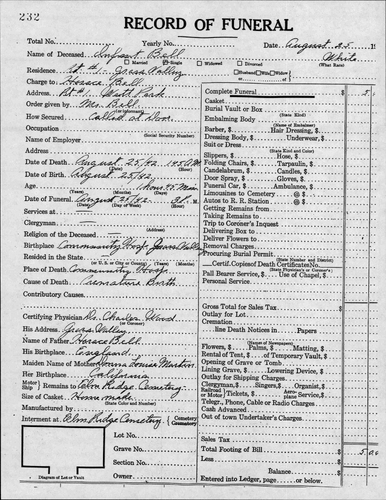 232
RECORD OF FUNERAL
Total No. Yearly No. Date August 25 19
Name of Deceased Infant Bell White
Married Single Widowed Divorced (What Race)
Residence Rt #1 - Grass Valley Husband Wife Widow
Charge to Horace Bell
Address Rt #1.
Order given by Mr. Bell
How Secured Called at Door.
Occupation
(Social Security Number)
Name of Employer
Address
Date of Death August 25/42 (Hour)
Date of Birth August 25/42
Age 1 hour 25 Min
Date of Funeral August 25/42
(Day of Week) (Hour)
Services at
Clergyman
Religion of the Deceased
Birthplace Community Hosp. Grass Valley
Resided in the State
(or U. S. or City or County) (Months or Days)
Place of Death Community Hosp.
Cause of Death Premature Birth
Contributory Causes
Certifying Physician Dr. Charles Wood
(or Coroner)
His Address Grass Valley
Name of Father Horace Bell
His Birthplace England
Maiden Name of Mother Donna Louise Martin
Her Birthplace California
Motor Ship Remains to Elm Ridge Cemetery
Size of Casket Homemade
(State Color and Number)
Manufactured by
Interment at Elm Ridge Cemetery Cemetery Crematory
Lot No.
Grave No.
Section No.
Owner
Diagram of Lot or Vault
Complete Funeral $
Casket
Burial Vault or Box
(State Kind)
Embalming Body
(Name of Embalmer)
Barber, $ Hair Dressing, $
Dressing Body, $ Underwear, $
Suit or Dress
(State Kind and Color)
Slippers, $ Hose, $
Folding Chairs, $ Tarpaulin, $
Candelabrum, $ Candles, $
Door Spray, $ Gloves, $
Funeral Car, $ Ambulance, $
Limousines to Cemetery @ $
Autos to R. R. Station @ $
Getting Remains from
Taking Remains to
Trip to Coroner's Inquest
Delivering Box to
Deliver Flowers to
Removal Charges
(State Number and District)
Procuring Burial Permit
Certif. Copies of Death Certificate No.
(State Physician's or Coroner's)
Pall Bearer Service, $ Use of Chapel, $
Personal Service
Gross Total for Sales Tax $
Outlay for Lot
Cremation
line Death Notices in Papers
(Names of Newspapers)
Flowers, $ Palms, $ Matting, $
Rental of Tent, $ of Temporary Vault, $
Opening of Grave or Tomb
Lining Grave, $ Lowering Device, $
Outlay for Shipping Charges
Clergyman, $ Singers, $ Organist, $
Rail or Motor Tickets, $ Aero-plane Service, $
Telegr., Phone, Cable or Radio Charges
Cash Advanced
Out of town Undertaker's Charges
Sales Tax
Total Footing of Bill $
Less
Balance $
Entered into Ledger, page or below.